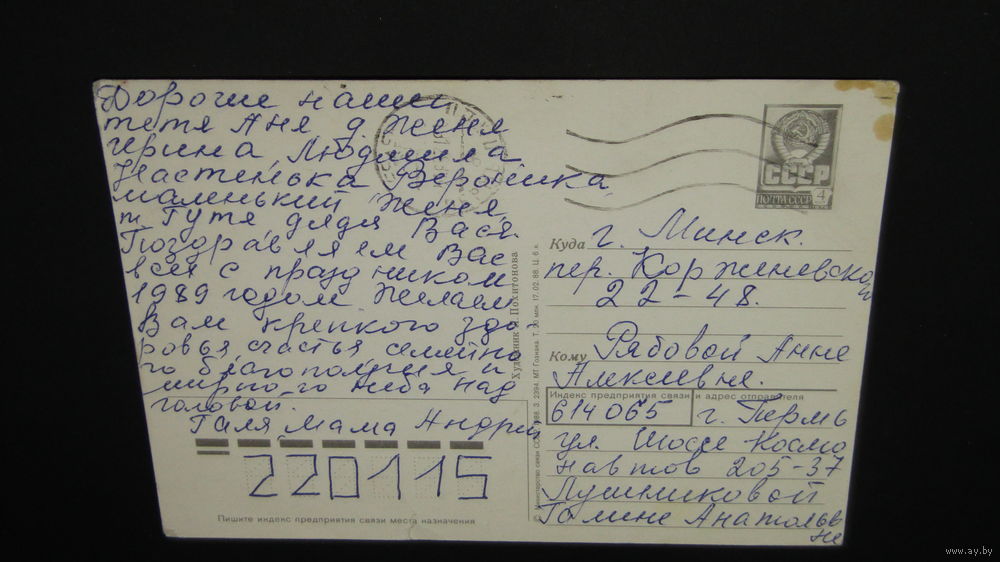 Дорогие наши
тетя Аня д. Женя
Ирина, Людмила
Настенька Вероника
маленький Женя,
т. Тутя дядя Вася.
Поздравляем Вас
всех с праздником
1989 годом Желаем
Вам крепкого здо
ровья, счастья, семейно
го благополучия и
мирного неба над
головой.
Галя, мама Андрей
220115
Пишите индекс предприятия связи места назначения
Художник Похитонова
СССР
ПОЧТА СССР 4
Куда г. Минск.
пер. Корженевского
22-48.
Кому Рябовой Анне
Алексеевне.
Индекс предприятия связи и адрес отправителя
614065 г. Пермь
ул. Шоссе Космо
навтов 205-37
Лушниковой
Галине Анатольев
не
© Министерство связи СССР, 1988. З. 2394. МТ Гознака. 17.02.88. Ц. 6 к.
www.ay.by